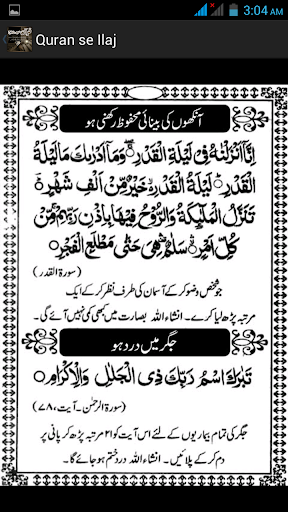 3:04 AM
Quran se Ilaj
آنکھوں کی بینائی محفوظ رکھنی ہو
اِنَّآ اَنْزَلْنٰهُ فِيْ لَيْلَةِ الْقَدْرِ ۚ وَمَآ اَدْرٰىكَ مَا لَيْلَةُ
الْقَدْرِ ؕ لَيْلَةُ الْقَدْرِ خَيْرٌ مِّنْ اَلْفِ شَهْرٍ ؕ
تَنَزَّلُ الْمَلٰٓئِكَةُ وَالرُّوْحُ فِيْهَا بِاِذْنِ رَبِّهِمْ مِّنْ
كُلِّ اَمْرٍ ۛ سَلٰمٌ هِيَ حَتّٰى مَطْلَعِ الْفَجْرِ
(سورۃ القدر)
جو شخص وضو کر کے آسمان کی طرف نظر کر کے ایک
مرتبہ پڑھ لیا کرے۔ انشاءاللہ بصارت میں کبھی کمی نہیں آئے گی۔
جگر میں درد ہو
تَبٰرَكَ اسْمُ رَبِّكَ ذِي الْجَلٰلِ وَالْاِكْرَامِ
(سورۃ الرحمٰن۔ آیت، ۷۸)
جگر کی تمام بیماریوں کے لئے اس آیت کو ۲۱ مرتبہ پڑھ کر پانی پر
دم کر کے پلائیں۔ انشاءاللہ درد ختم ہو جائے گا۔